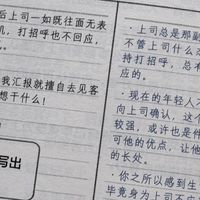 后上司一如既往面无表
，打招呼也不回应，
我汇报就擅自去见客
想干什么！
写出
·上司总是那副
不管上司什么态
持打招呼，总有
应的。
·现在的年轻人不
向上司确认，这个
较强，或许也是件
可他的优点，让他
的长处。
·你之所以感到生
毕竟身为上司不应